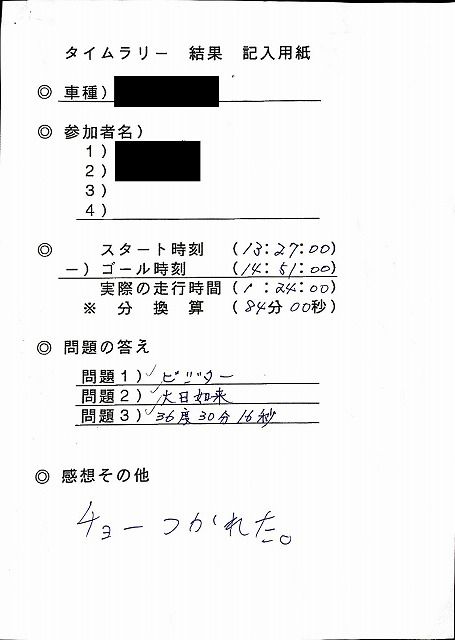 タイムラリー 結果 記入用紙
◎ 車種)
◎ 参加者名)
1)
2)
3)
4)
◎ スタート時刻 (13:27:00)
－) ゴール時刻 (14:51:00)
実際の走行時間 (1:24:00)
※ 分 換 算 (84分00秒)
◎ 問題の答え
問題1) ✓ビジター
問題2) ✓大日如来
問題3) ✓36度30分16秒
◎ 感想その他
チョーつかれた。